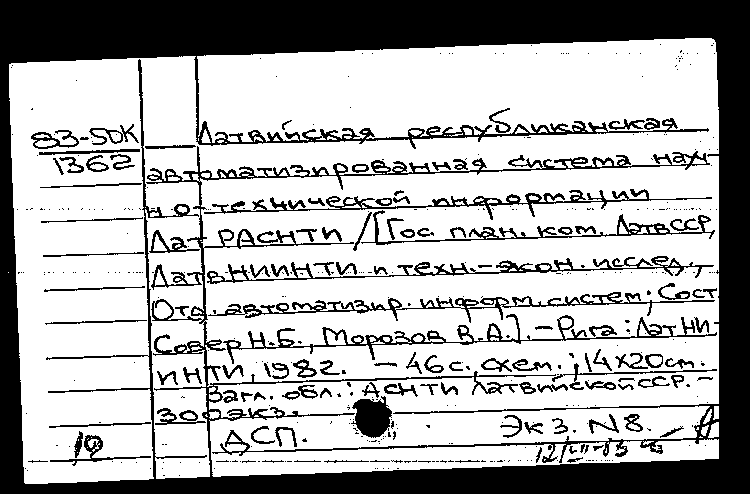 83-5DK
1362
Латвийская республиканская
автоматизированная система науч-
но-технической информации
ЛатРАСНТИ / [Гос. план. ком. ЛатвССР,
Латв.НИИНТИ и техн.-экон. исслед.,
Отд. автоматизир. информ. систем; Сост.
Совер Н.Б., Морозов В.А.]. - Рига: ЛатНИ-
ИНТИ, 1982. - 46 с., схем.; 14х20 см.
Загл. обл.: АСНТИ Латвийской ССР. -
300 экз.
ДСП. Экз. N8.